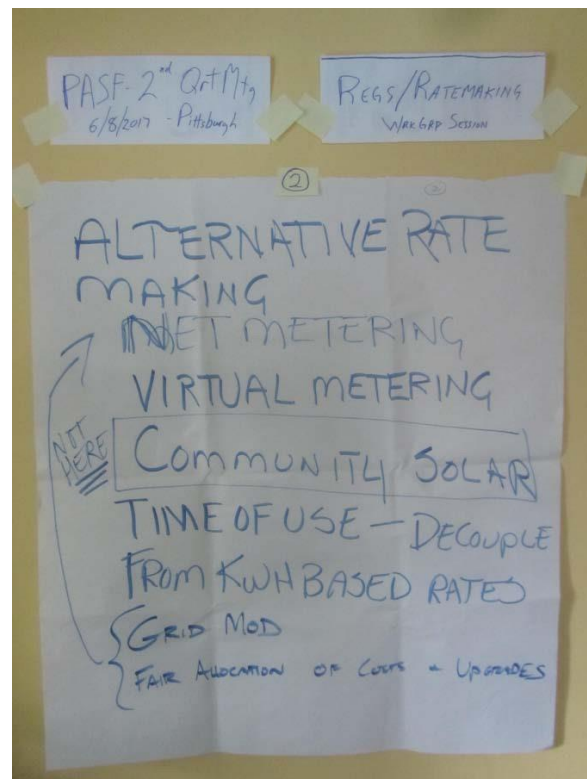 PASF - 2nd Qrt Mtg
6/8/2017 - Pittsburgh
REGS/RATEMAKING
WRKGRP SESSION
②
②
ALTERNATIVE RATE
MAKING
NET METERING
VIRTUAL METERING
NOT
HERE
COMMUNITY SOLAR
TIME OF USE - DECOUPLE
FROM KWH BASED RATES
GRID MOD
FAIR ALLOCATION OF COSTS & UPGRADES